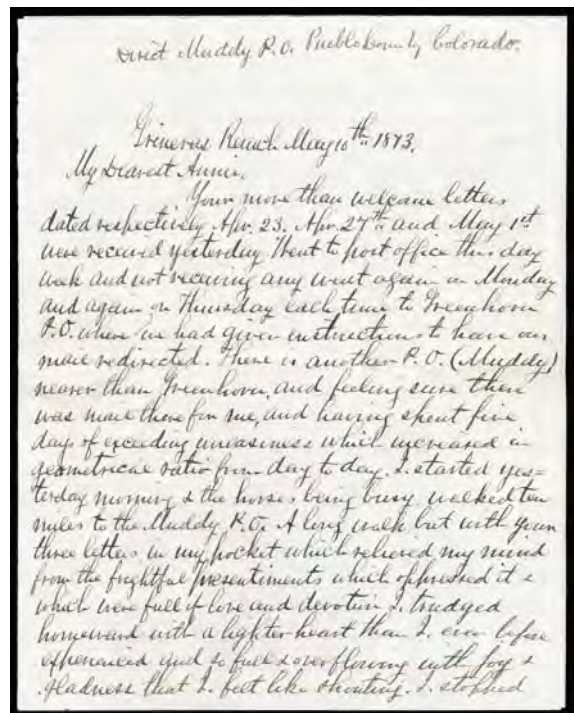 Direct Muddy P.O. Pueblo County Colorado.
Ranch May 10th 1873.
My Dearest Annie,
Your more than welcome letters
dated respectively Apr. 23. Apr. 27th and May 1st
were received yesterday. Went to post office this day
week and not receiving any went again on Monday
and again on Thursday each time to Greenhorn
P.O. where we had given instructions to have our
mail redirected. There is another P.O. (Muddy)
nearer than Greenhorn, and feeling sure there
was mail there for me, and having spent five
days of exceeding uneasiness which increased in
geometrical ratio from day to day. I started yes=
terday morning & the horses being busy walked ten
miles to the Muddy P.O. A long walk but with your
three letters in my pocket which relieved my mind
from the frightful presentiments which oppressed it &
which were full of love and devotion I trudged
homeward with a lighter heart than I ever before
experienced and so full & overflowing with joy &
gladness that I felt like shouting. I stopped